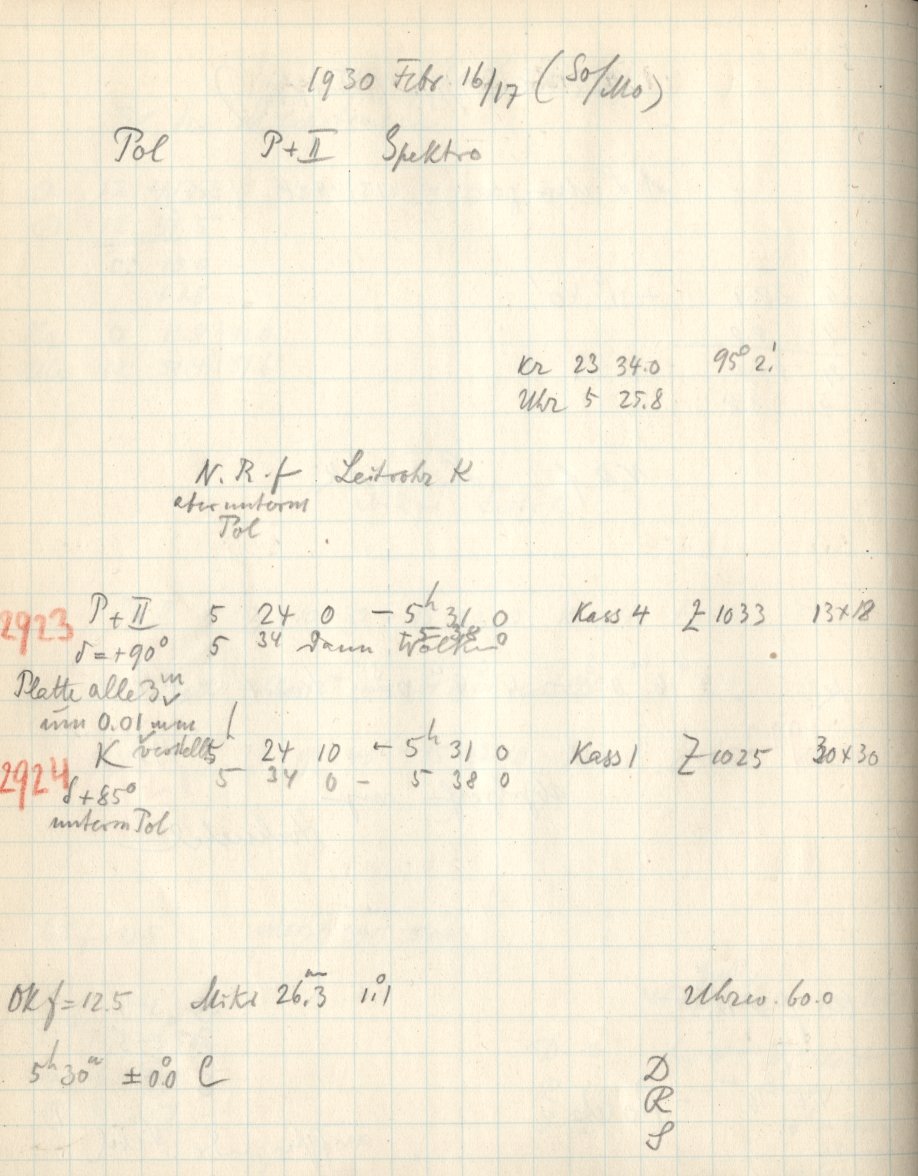 1930 Febr 16/17 (So/Mo)
Pol P+II Spektro
Kr 23 34.0 95° 2!
Uhr 5 25.8
N. R. f Leitrohr K
aber unterm
Pol
2923 P+II 5 24 0 – 5h 31 0 Kass 4 Z 1033 13×18
δ=+90° 5 34 dann Wolken 5 38 0
Platte alle 3m
um 0.01 mm
verstellt
2924 K 5h 24 10 – 5h 31 0 Kass 1 Z 1025 30×30
δ+85° 5 34 0 – 5 38 0
unterm Pol
Ok f=12.5 Mikr 26.3 1°.1 Uhrw. 60.0
5h 30m ±0°.0 C
D
R
S